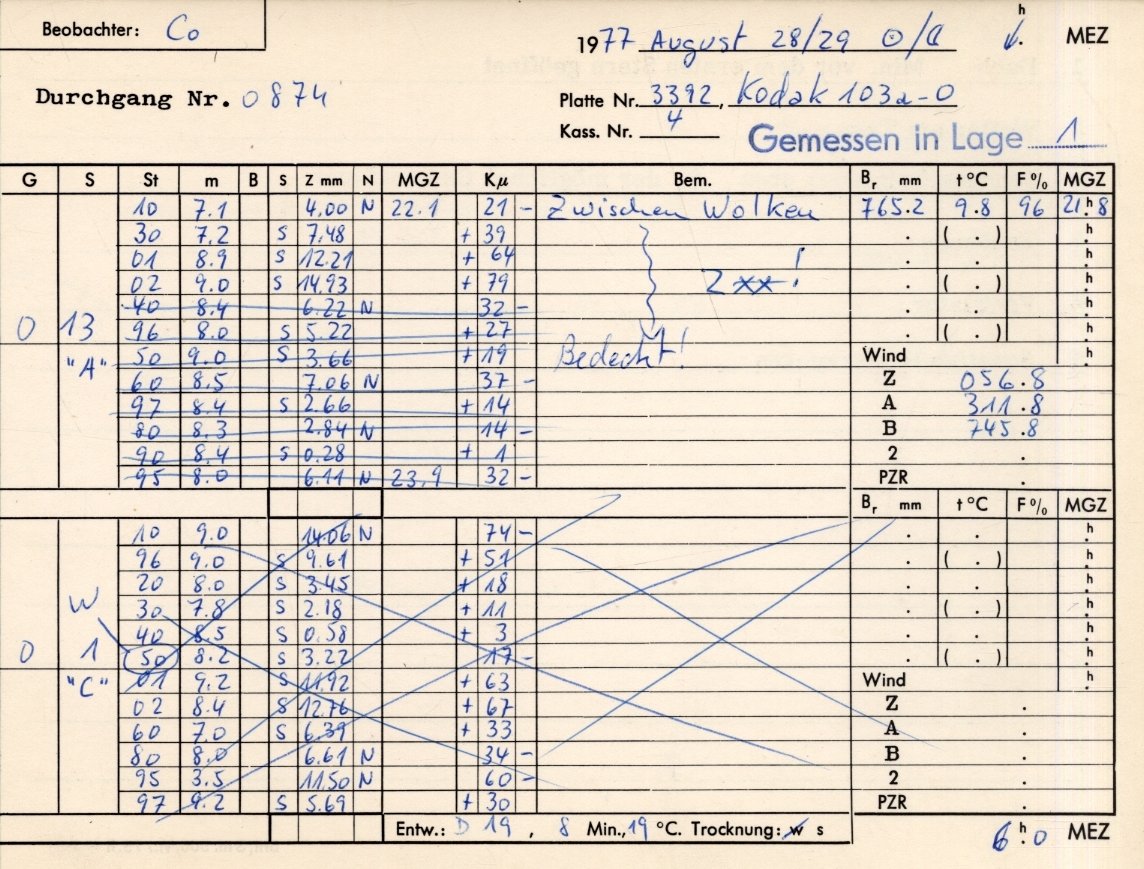 Beobachter: Co
1977 August 28/29 ⊙/☾ h. MEZ
Durchgang Nr. 0874
Platte Nr. 3392, Kodak 103a-O
Kass. Nr. 4
Gemessen in Lage 1
G S St m B S Z mm N MGZ Kμ Bem. Br mm t°C F% MGZ
10 7.1 4.00 N 22.1 21 - Zwischen Wolken 765.2 9.8 96 21.h8
30 7.2 S 7.48 + 39 . ( . ) h
01 8.9 S 12.21 + 64 . . h
02 9.0 S 14.93 + 79 Zxx! . ( . ) h
40 8.4 6.22 N 32 - . . h
0 13 96 8.0 S 5.22 + 27 . ( . ) h
"A" 50 9.0 S 3.66 + 19 Bedeckt! Wind h
60 8.5 7.06 N 37 - Z 056.8
97 8.4 S 2.66 + 14 A 311.8
80 8.3 2.84 N 14 - B 745.8
90 8.4 S 0.28 + 1 2 .
95 8.0 6.11 N 23.9 32 - PZR
Br mm t°C F% MGZ
10 9.0 14.06 N 74 - . . h
96 9.0 S 9.61 + 51 . ( . ) h
20 8.0 S 3.45 + 18 . . h
W 30 7.8 S 2.18 + 11 . ( . ) h
40 8.5 S 0.58 + 3 . . h
0 1 50 8.2 S 3.22 17 - . ( . ) h
"C" 01 9.2 S 11.92 + 63 Wind h
02 8.4 S 12.76 + 67 Z .
60 7.0 S 6.39 + 33 A .
80 8.0 6.61 N 34 - B .
95 3.5 11.50 N 60 - 2 .
97 9.2 S 5.69 + 30 PZR .
Entw.: D 19, 8 Min., 19 °C. Trocknung: w s
6h.0 MEZ